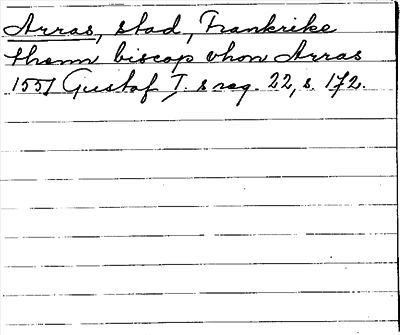 Arras, stad, Frankrike
thenn biscop vhon Arras
1551 Gustaf I. s reg. 22, s. 172.